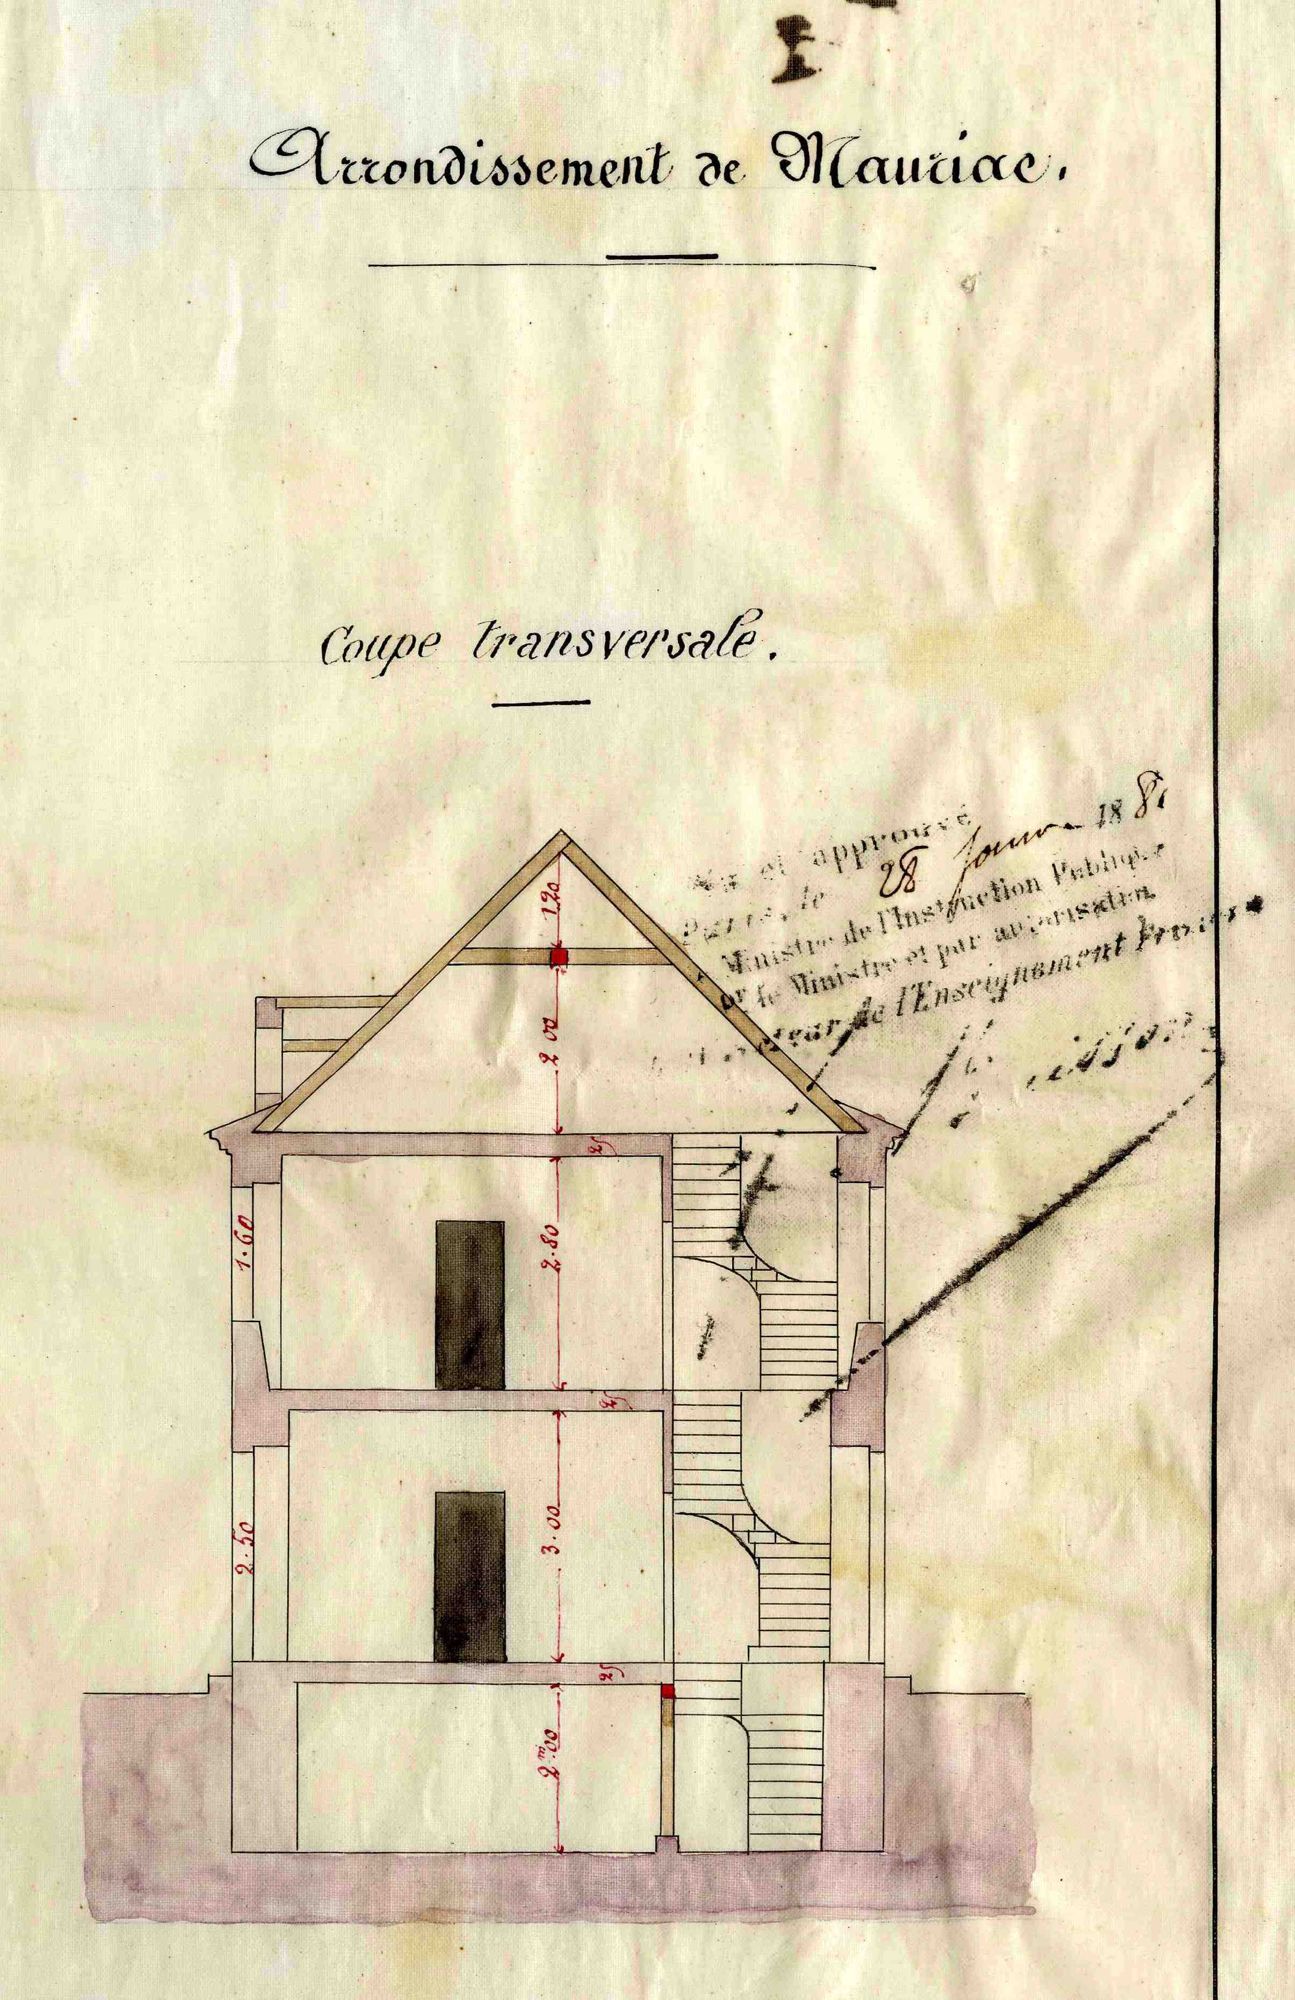 Arrondissement de Mauriac.
Coupe transversale.
Vu et approuvé
Paris, le 28 Janv 188
Ministre de l'Instruction Publique
le Ministre et par autorisation
de l'Enseignement
1.20
2 00
25
1.60
2.80
25
2.50
3.00
25
2m.00